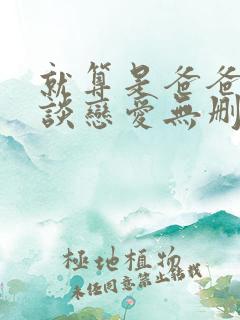 就算是爸爸
談戀愛無刪
極地植物
未經同意禁止轉載